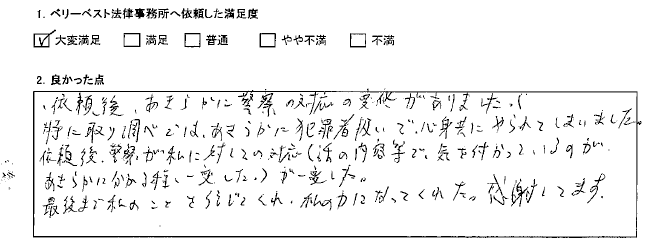 1. ベリーベスト法律事務所へ依頼した満足度
大変満足 満足 普通 やや不満 不満
2. 良かった点
、依頼後、あきらかに警察の対応の変化がありました。(
特に取り調べでは、あきらかに犯罪者扱いで、心身共にやられてしまいました。
依頼後、警察が私に対しての対応(話の内容等で、気を付かっているのが
あきらかに分かる程、一変した。)が一変した。
最後まで私のことを信じてくれ、私の力になってくれた。感謝してます。